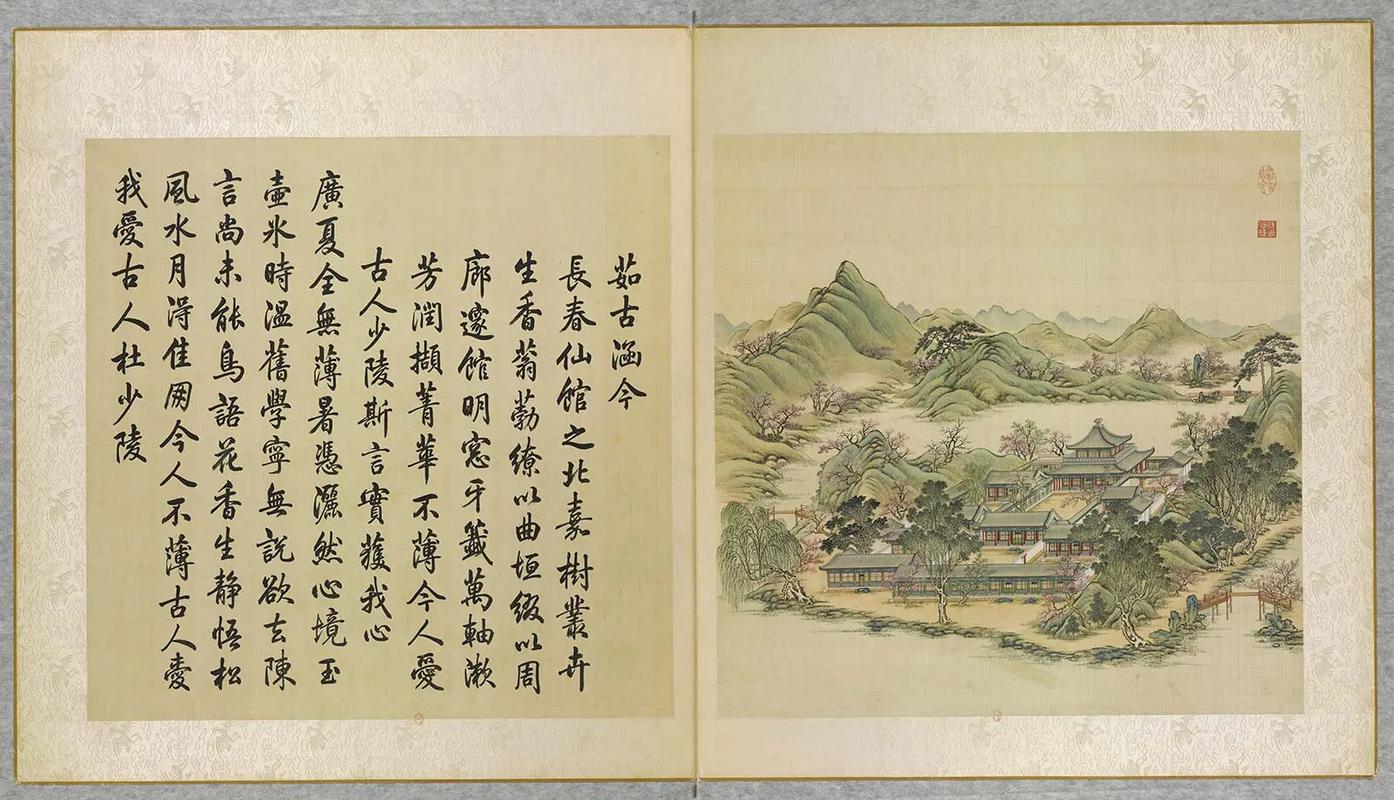 茹古涵今
長春仙館之北嘉樹叢卉
生香蓊葧繚以曲垣綴以周
廊邃館明窓牙籤萬軸漱
芳潤擷菁華不薄今人愛
古人少陵斯言實獲我心
廣夏全無薄暑憑灑然心境玉
壺冰時溫舊學寧無說欲去陳
言尚未能鳥語花香生静悟松
風水月淂佳朋今人不薄古人愛
我愛古人杜少陵